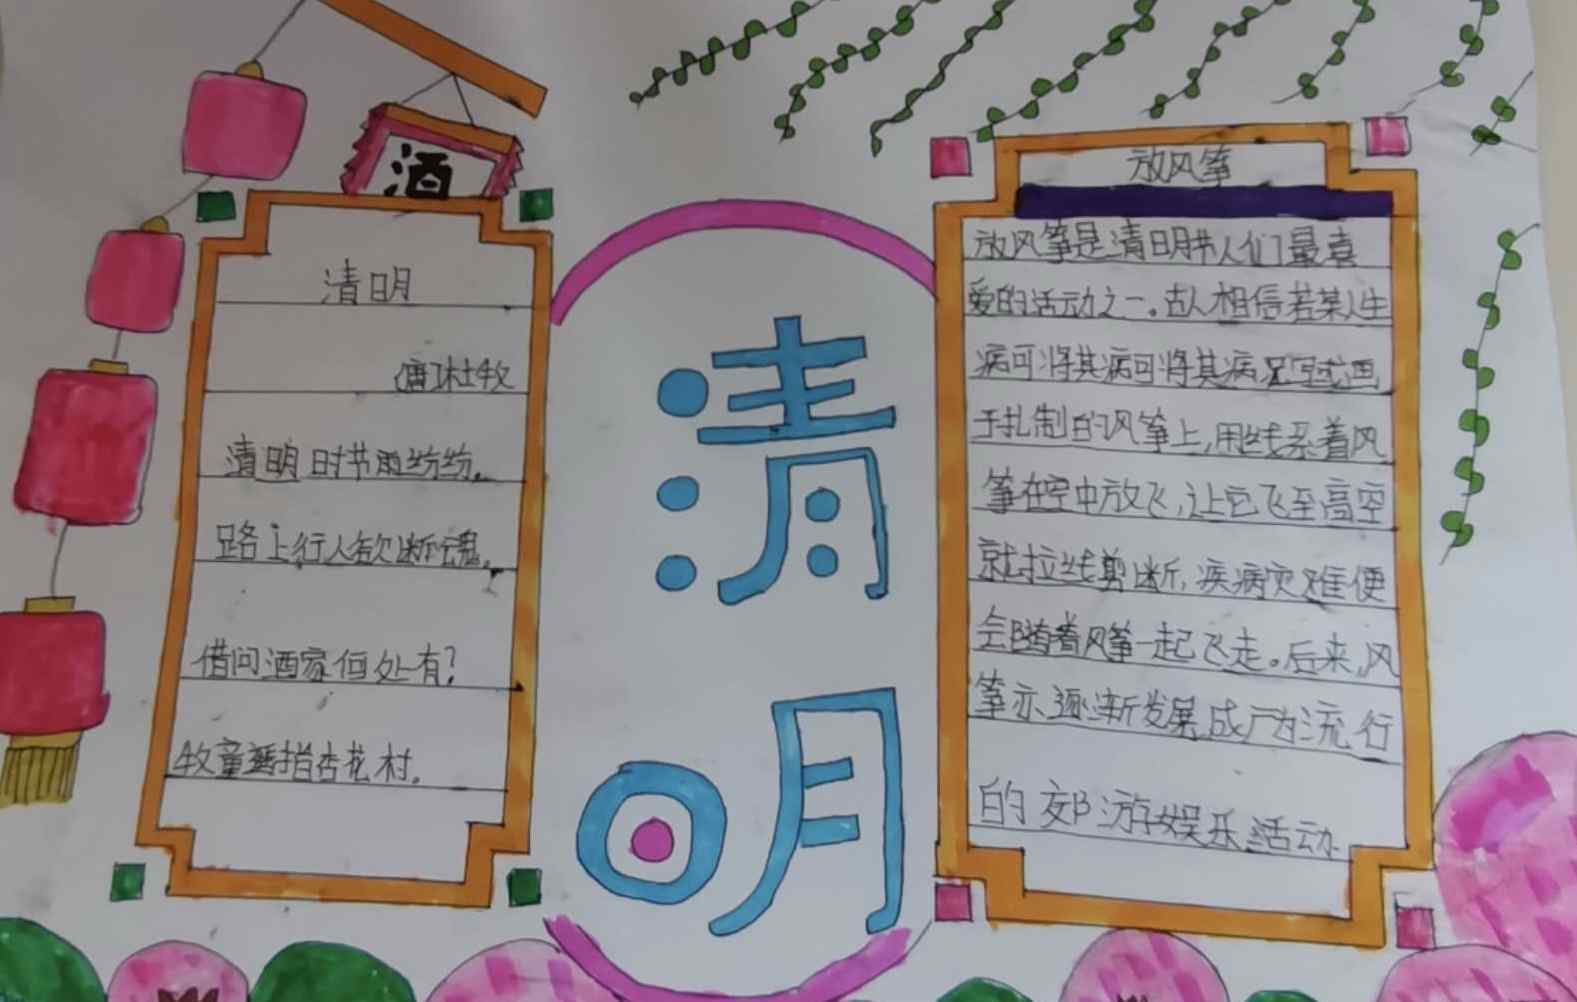 酒
清明
唐 杜牧
清明时节雨纷纷。
路上行人欲断魂。
借问酒家何处有？
牧童遥指杏花村。
清
明
放风筝
放风筝是清明节人们最喜
爱的活动之一。古人相信若某人生
病可将其病可将其病况写或画
于扎制的风筝上,用线系着风
筝在空中放飞,让它飞至高空
就拉线剪断,疾病灾难便
会随着风筝一起飞走。后来,风
筝亦逐渐发展成为流行
的郊游娱乐活动.